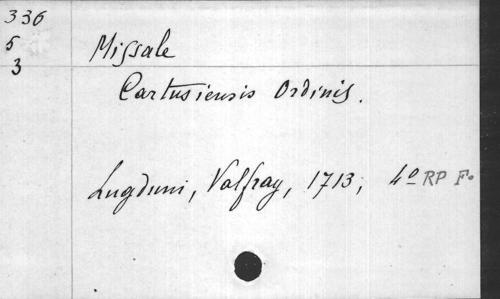 336
5
3
Missale
Cartusiensis Ordinis.
Lugduni, Valfray, 1713, 4º RP F.